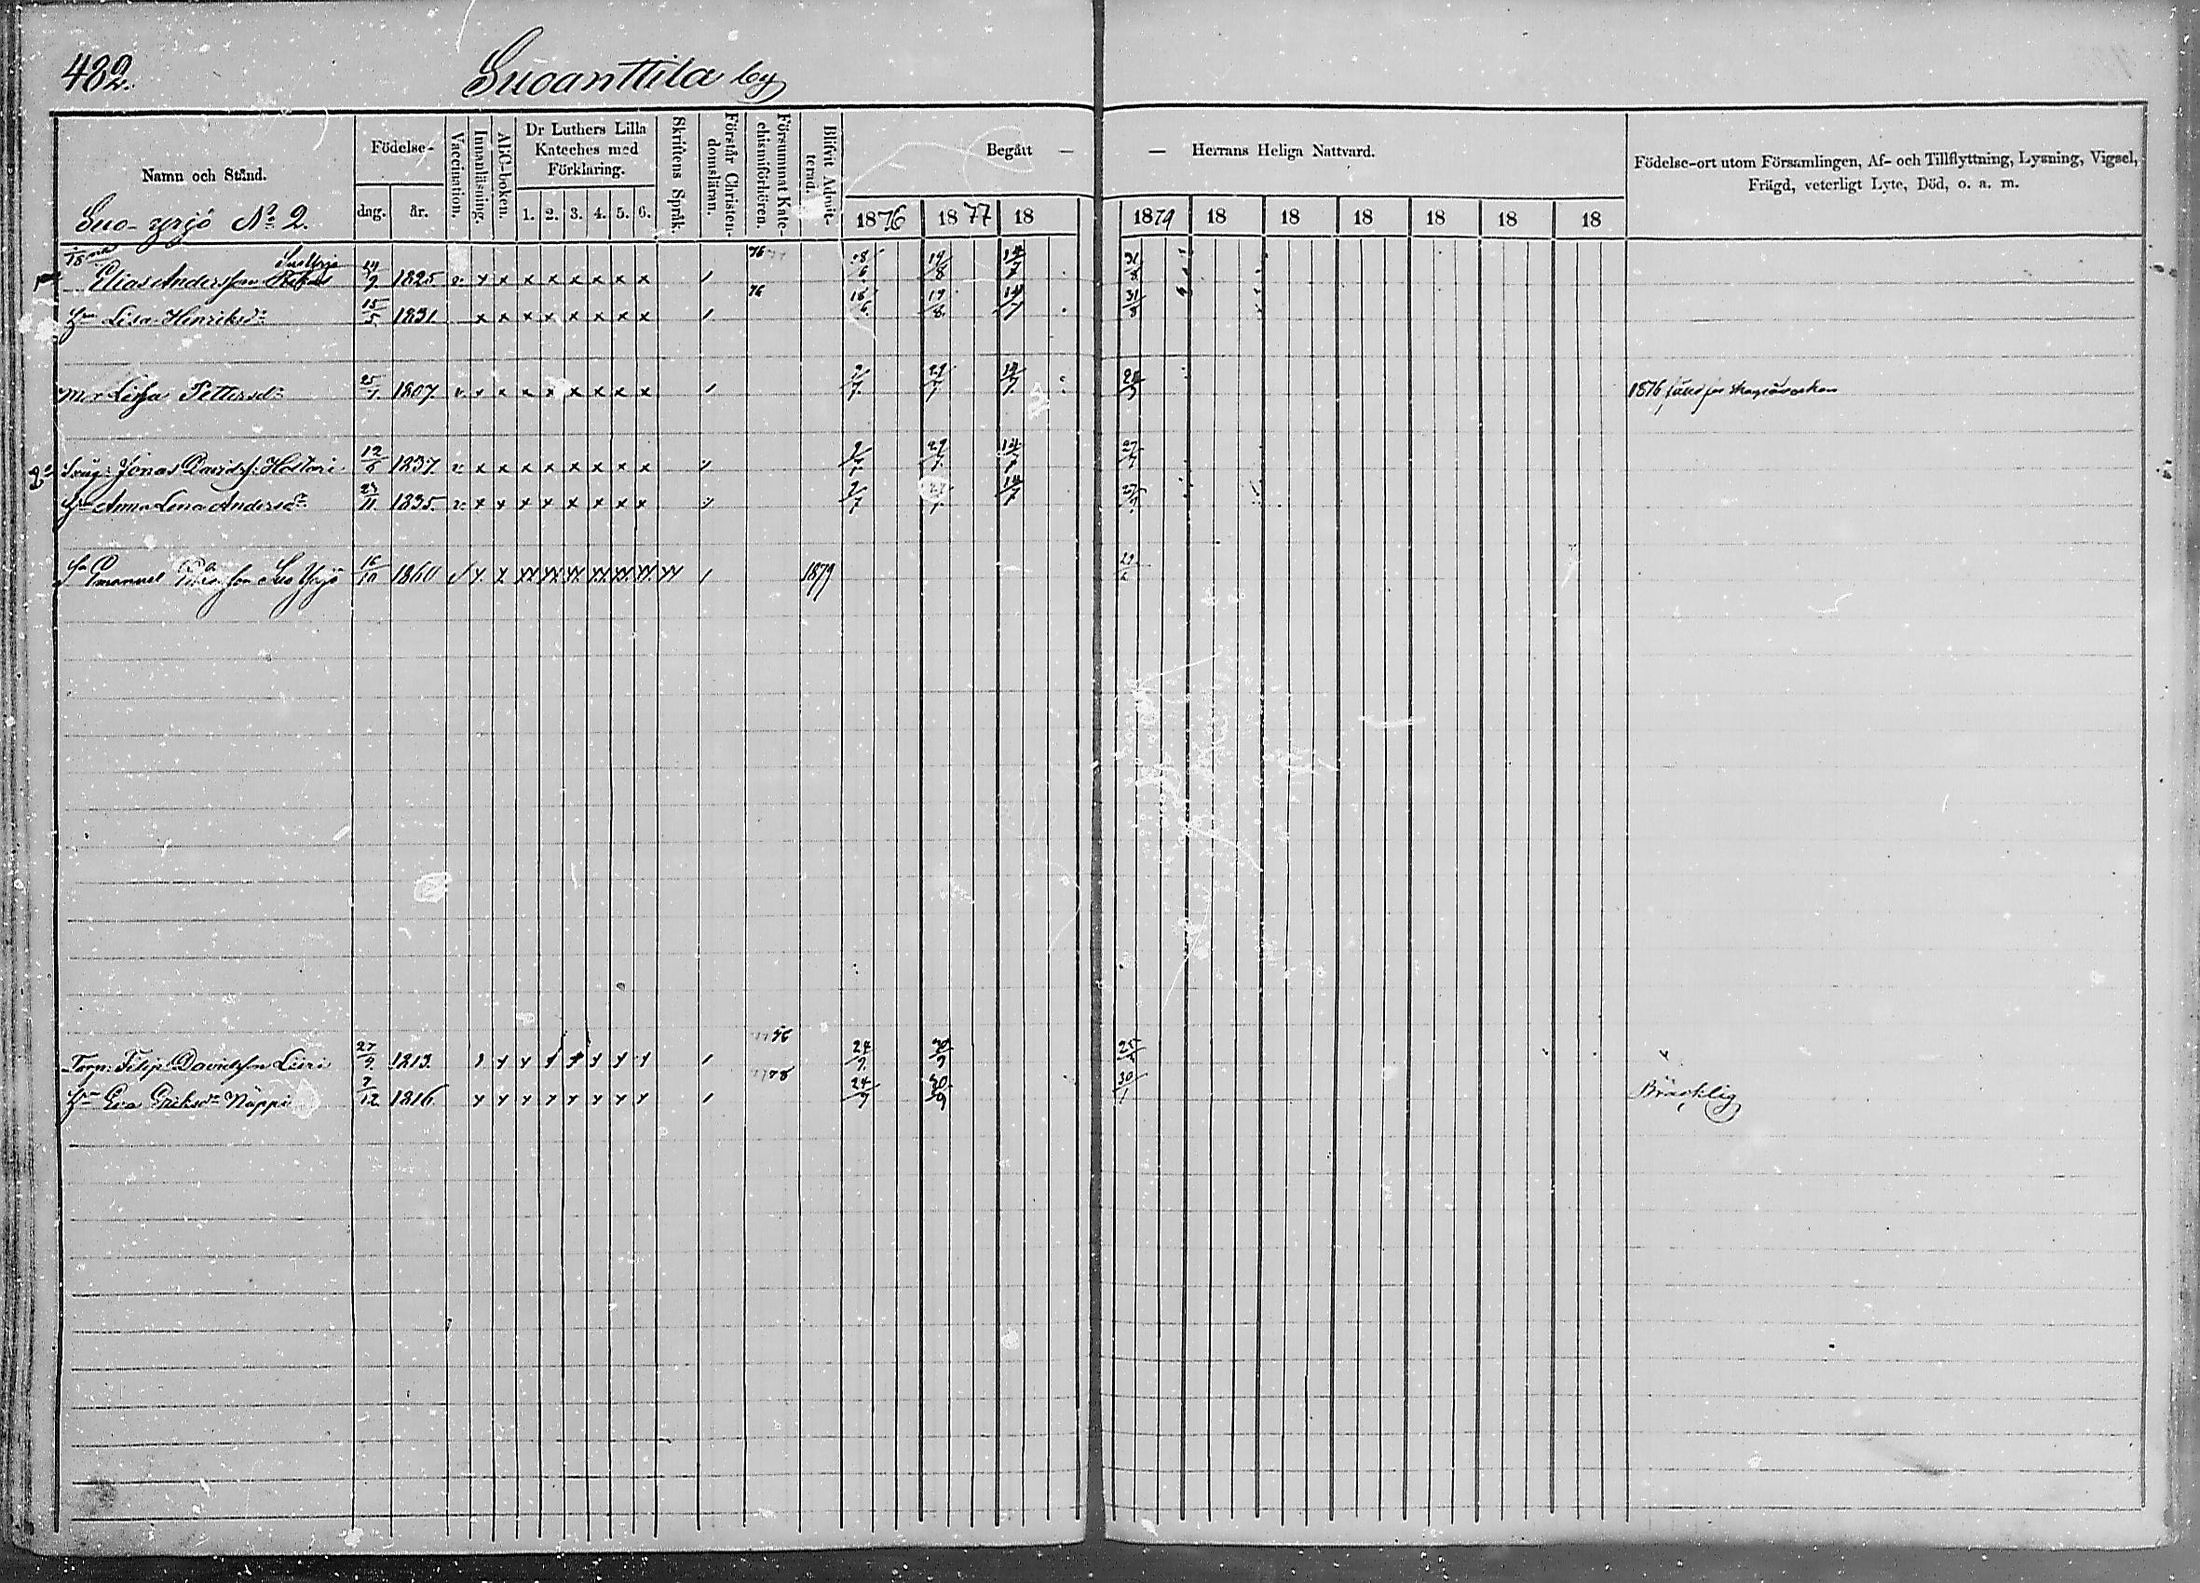 482.
Suoanttila by
Namn och Stånd.
Födelse-
dag.
år.
Vaccination.
Innanläsning.
ABC-boken.
Dr Luthers Lilla
Kateches med
Förklaring.
1. 2. 3. 4. 5. 6.
Skriftens Språk.
Förstår Christen-
domsläran.
Försummat Kate-
chismiförhören.
Blifvit Admit-
terad.
Begått —
— Herrans Heliga Nattvard.
1876 1877 18 1879 18 18 18 18 18 18
Födelse-ort utom Församlingen, Af- och Tillflyttning, Lysning, Vigsel,
Frägd, veterligt Lyte, Död, o. a. m.
Suo-yrjö No 2.
Elias Andersson Suo Yrjö 14/9 1825 v. x x x x x x x x / 76 18/6 19/8 14/7 31/8
Hu Lisa Henriksdr 15/5 1831 x x x x x x x x / 76 18/6 19/8 14/7 31/8
Mor Lisa Pettersdr 25/1 1807 v. x x x x x x x x / 2/7 14/7 1876
Jonas Davidss: Hostari 12/6 1837 v x x x x x x x x 2/7 14/7
Hu Anna Lena Andersdr 23/11 1835 v x x x x x x x x 2/7 14/7
Sn Emanuel Suo Yrjö 16/10 1860 / 1879
Torp: Filip Davidsson Lieri 27/9 1813 / 76 24/9 30/9
Hu Eva Eriksdr Näppi 7/12 1816 / 78 24/9 30/9 Bräcklig